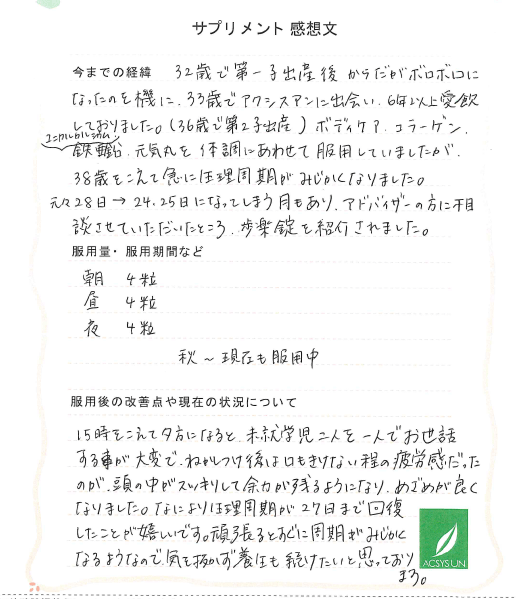 サプリメント 感想文
今までの経緯 32歳で第一子出産後 からだがボロボロに
なったのを機に、33歳でアクシスアンに出会い、6年以上愛飲
しておりました。(36歳で第2子出産) ボディケア、コラーゲン、
ユニカルカルシウム
鉄亜鉛、元気丸を体調にあわせて服用していましたが、
38歳をこえて急に生理周期がみじかくなりました。
元々28日→24、25日になってしまう月もあり、アドバイザーの方に相
談させていただいたところ、歩楽錠を紹介されました。
服用量・服用期間など
朝 4粒
昼 4粒
夜 4粒
秋〜現在も服用中
服用後の改善点や現在の状況について
15時をこえて夕方になると、未就学児二人を一人でお世話
する事が大変で、ねかしつけ後は口もきけない程の疲労感だった
のが、頭の中がスッキリして余力が残るようになり、めざめが良く
なりました。なにより生理周期が27日まで回復
したことが嬉しいです。頑張るとすぐに周期がみじかく
なるようなので、気を抜かず養生も続けたいと思っており
ます。
ACSYSUN